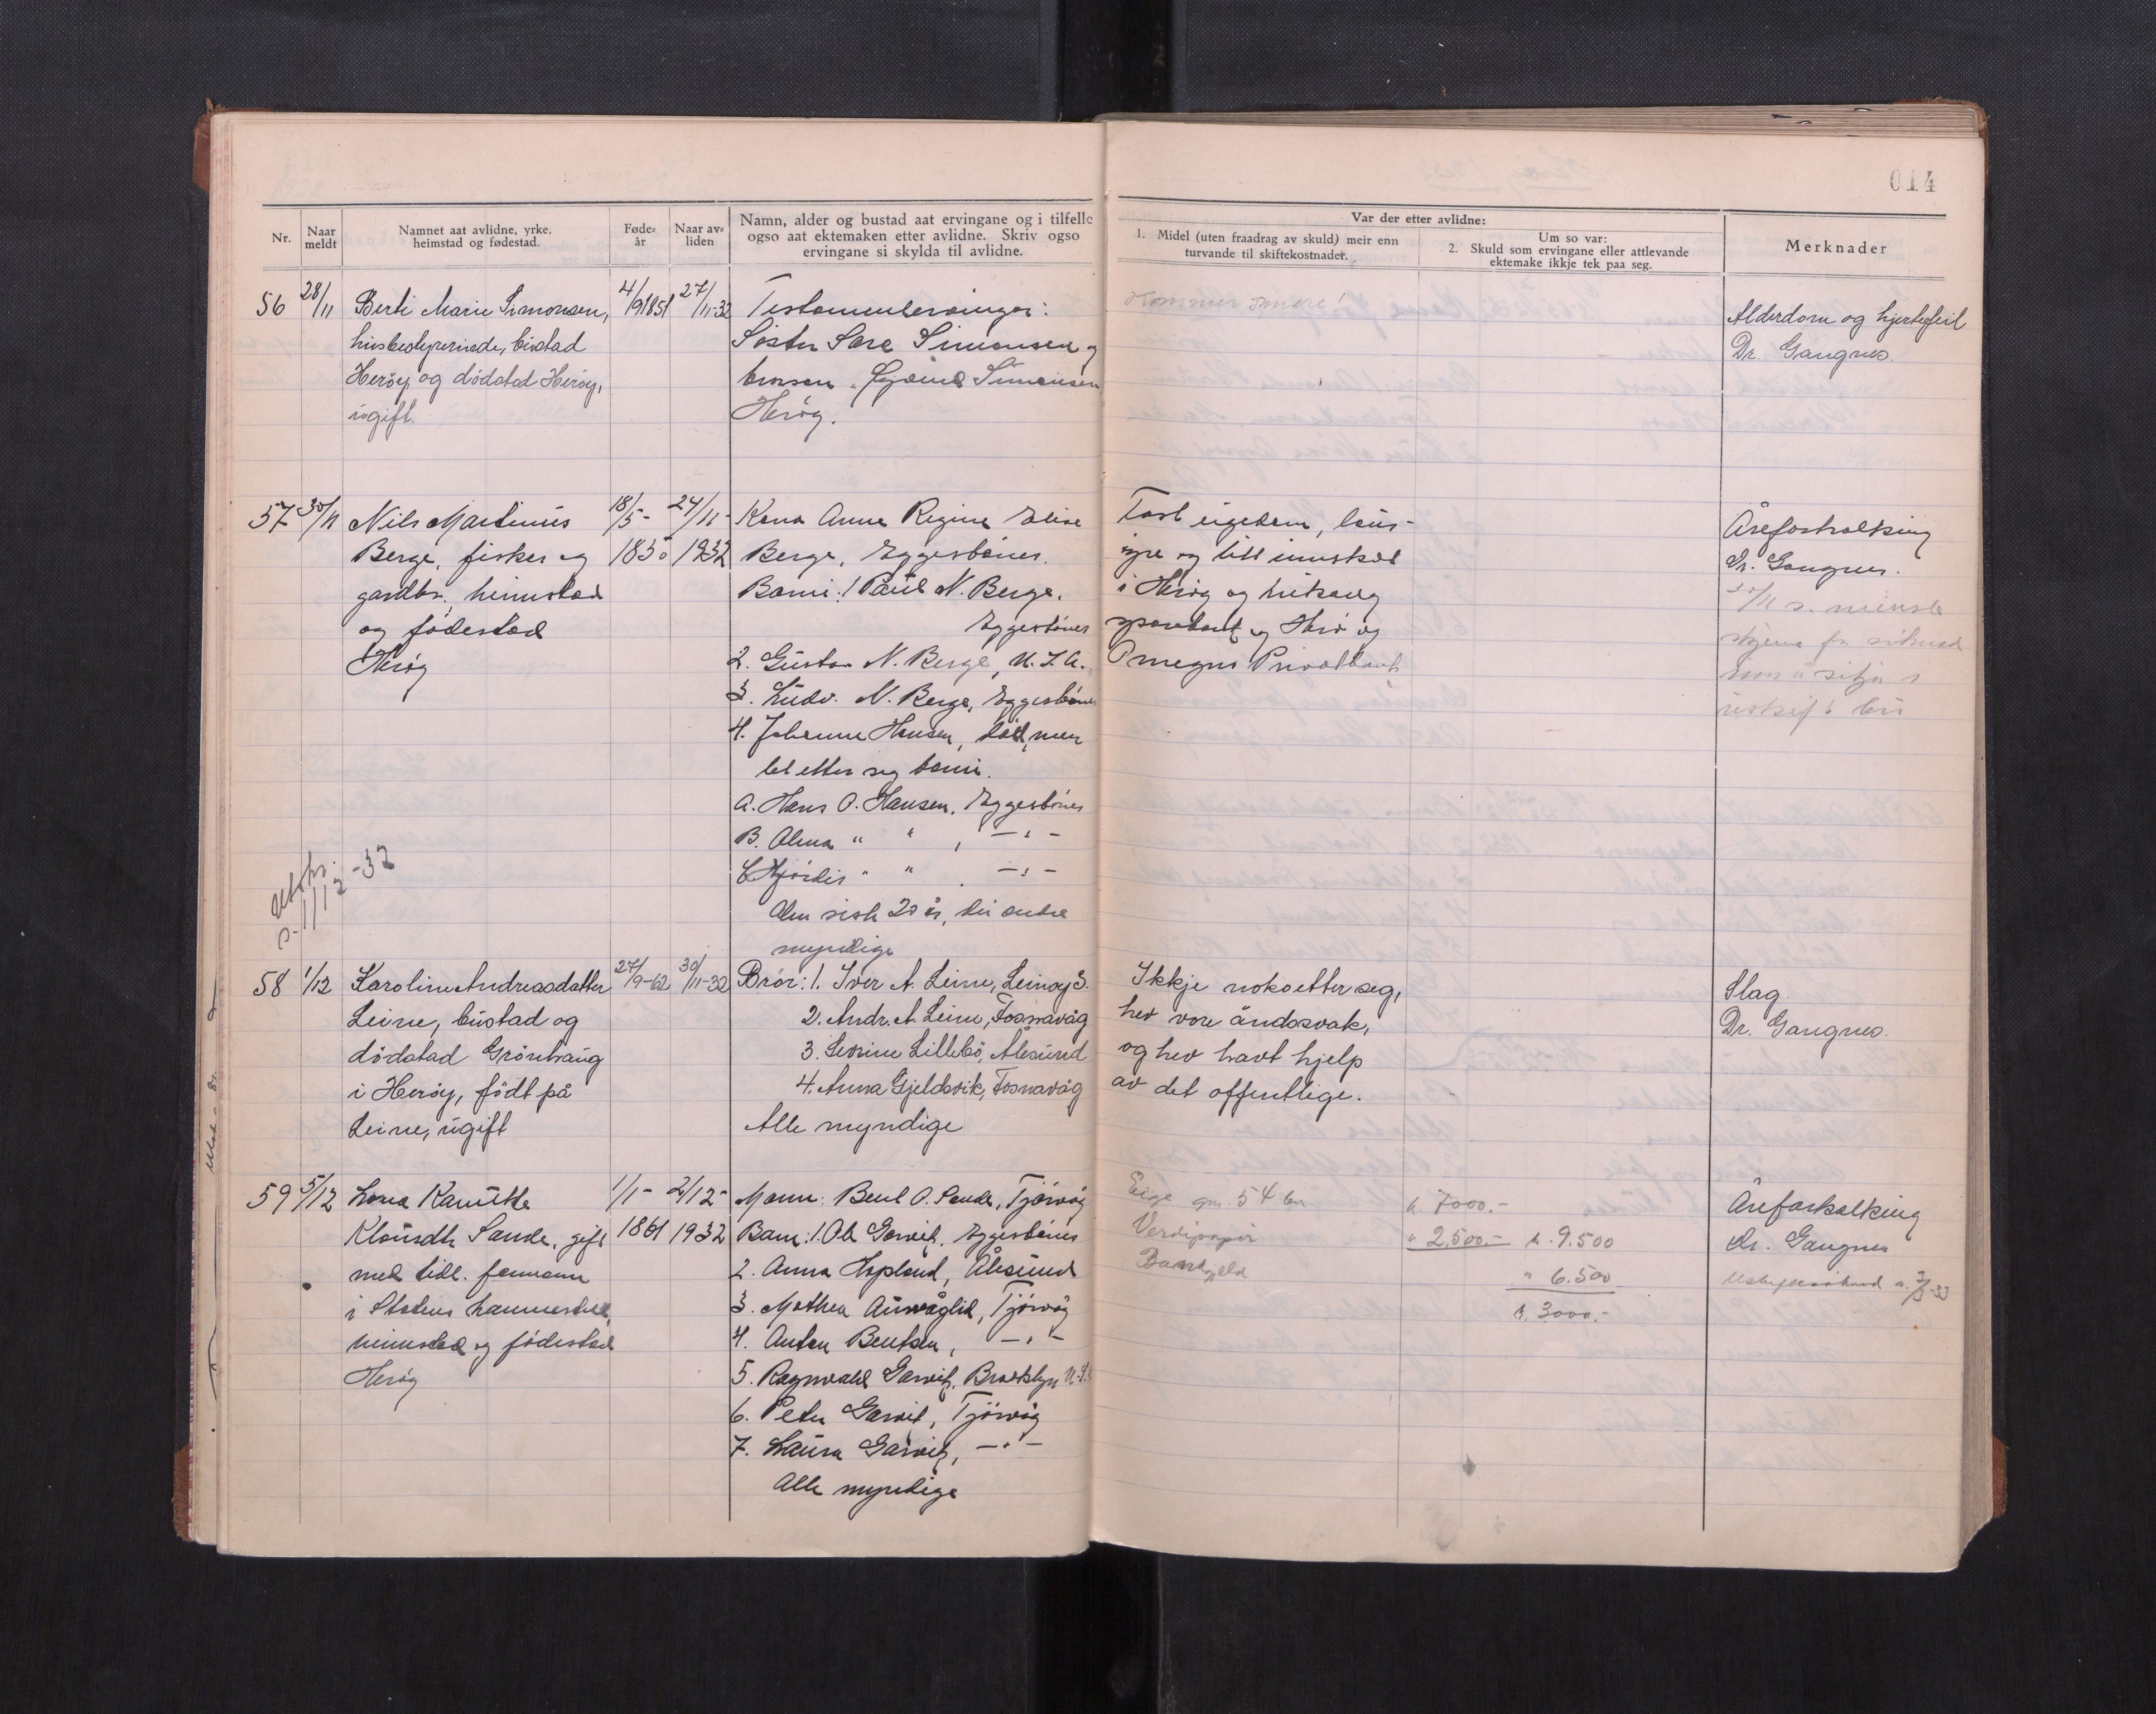 014
Nr.
Naar meldt
Namnet aat avlidne, yrke, heimstad og fødestad.
Føde-år
Naar av-liden
Namn, alder og bustad aat ervingane og i tilfelle
ogso aat ektemaken etter avlidne. Skriv ogso
ervingane si skylda til avlidne.
Var der etter avlidne:
1. Midel (uten fraadrag av skuld) meir enn
turvande til skiftekostnader.
Um so var:
2. Skuld som ervingane eller attlevande
ektemake ikkje tek paa seg.
Merknader
56 28/11 Berti Marie Simonsen, 4/9 1851 27/11-32 Testamentarvinger:
husbestyrerinde, bustad Søster Sara Simonsen og
Herøy og dødstad Herøy, brorson Simonsen
ugift. Herøy.
Kommer senere!
Alderdom og hjertefeil
Dr. Gangnes.
57 30/11 Nils Martinus 18/5- 24/11- Kona Anne Regine Elise
Berge, fisker og 1850 1932 Berge, Eggesbønes.
gardbr., heimstad Borni: 1 Paul N. Berge,
og fødestad Eggesbønes
Herøy 2. Gustav N. Berge, U.S.A.
3. Ludv. N. Berge, Eggesbønes
4. Johanne Hansen, død, men
let etter seg borni.
A. Hans O. Hansen, Eggesbønes
B. Alma " " , -"-
C. Hjørdis " " . -"-
Den siste 20 år, dei andre
myndige
Fast eigedom, laus-
øyre og litt innskot
i Herøy og
sparebank og Herø og
Omegns Privatbank
Åreforkalking
Dr. Gangnes.
30/11 s.
skjema for søknad
um å sitja i
uskift bu
s. 1/12-32
58 1/12 Karoline Andreasdatter 27/9-62 30/11-32 Bror: 1. Iver A. Leine, Leinøy S.
Leine, bustad og 2. Andr. A. Leine, Fosnavåg
dødstad Grønhaug 3. Sevrine Lillebø, Ålesund
i Herøy, født på 4. Anna Gjeldsvik, Fosnavåg
Leine, ugift Alle myndige
Ikkje noko etter seg,
hev vore åndssvak,
og hev havt hjelp
av det offentlige.
Slag.
Dr. Gangnes.
59 5/12 Lova Kanutte 1/1- 2/12- Mann: Bent O. Sande, Tjørvåg
Sande, gift 1861 1932 Barn: 1. Ole Garvik, Eggesbønes
med tidl. formann 2. Anna Hopland, Ålesund
i Statens havnestell, 3. Mathea Aurvåglid, Tjørvåg
heimstad og fødestad 4. Anton Bentsen, -"-
Herøy 5. Ragnvald Garvik, Brooklyn U.S.
6. Peter Garvik, Tjørvåg
7. Laura Garvik, -"-
Alle myndige
Eige gnr. 54 bnr. k. 7000.-
Verdipapir " 2.500.- k. 9.500
Bankgjeld " 6.500
k. 3000.-
Åreforkalking
Dr. Gangnes